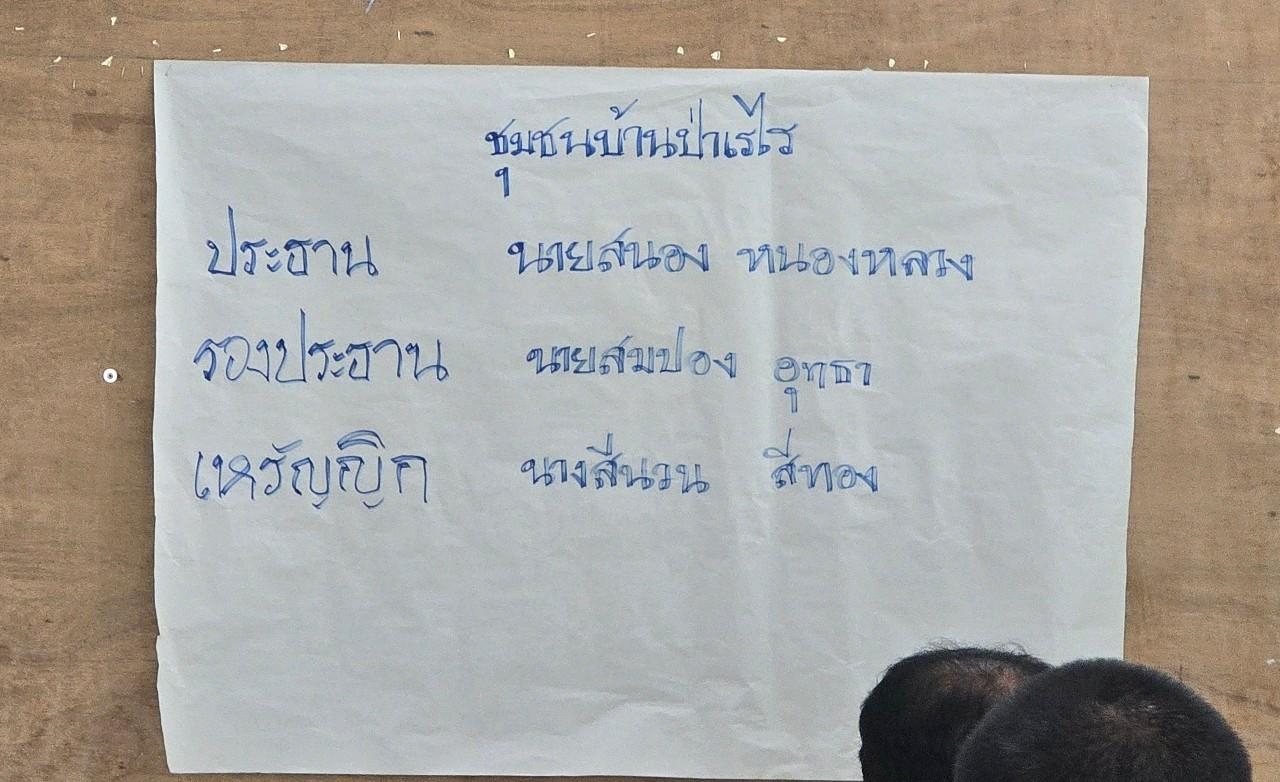 ชุมชนบ้านป่าเรไร
ประธาน นายสนอง หนองหลวง
รองประธาน นายสมปอง อุทธา
เหรัญญิก นางสีนวน สีทอง